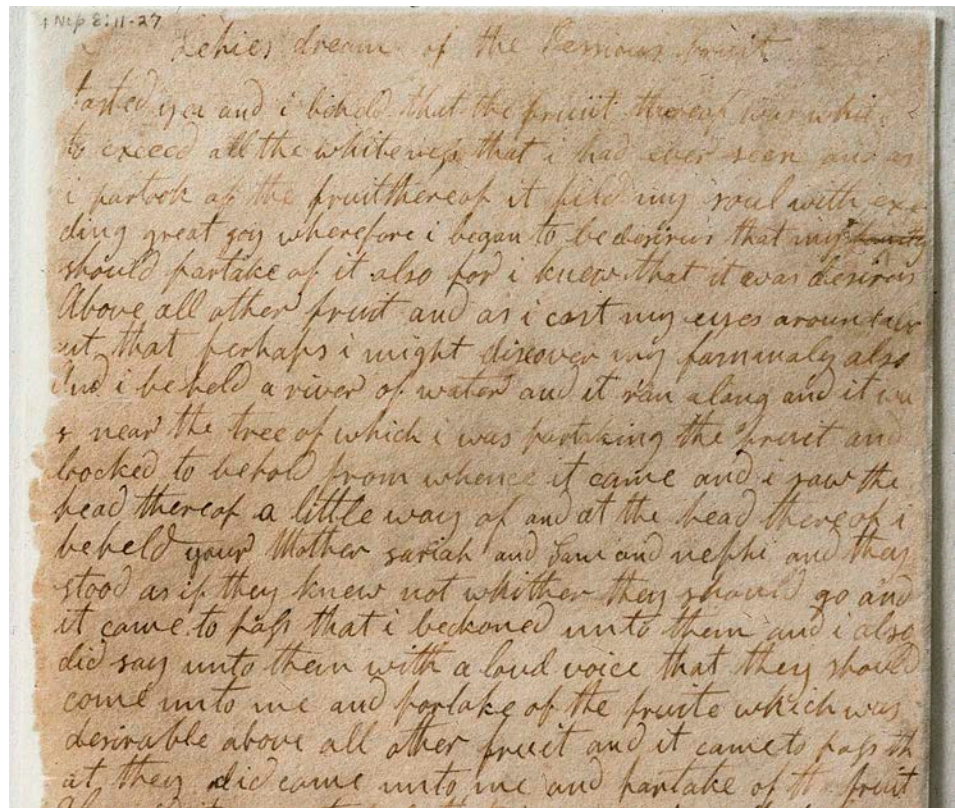 1 Nep 8:11-27
Lehies dream of the Pessious fruit
tasted yea and i behold that the fruiit thereof was whit
to exceed all the whiteness that i had ever seen and as
i partook of the fruit thereof it fild my soul with exe
ding great goy wherefore i began to be desirus that my
should partake of it also for i knew that it was desirus
Above all other fruit and as i cast my eyes around
ut that perhaps i might discover my fammaly also
And i beheld a river of water and it ran along and it wa
s near the tree of which i was partaking the fruit and
loocked to behold from whence it came and i saw the
head thereof a little way of and at the head thereof i
beheld your Mother sariah and Sam and nephi and they
stood as if they knew not whither they should go and
it came to pass that i beckoned unto them and i also
did say unto them with a loud voice that they should
come unto me and partake of the fruite which was
desirable above all other fruit and it came to pass th
at they did came unto me and partake of th fruit